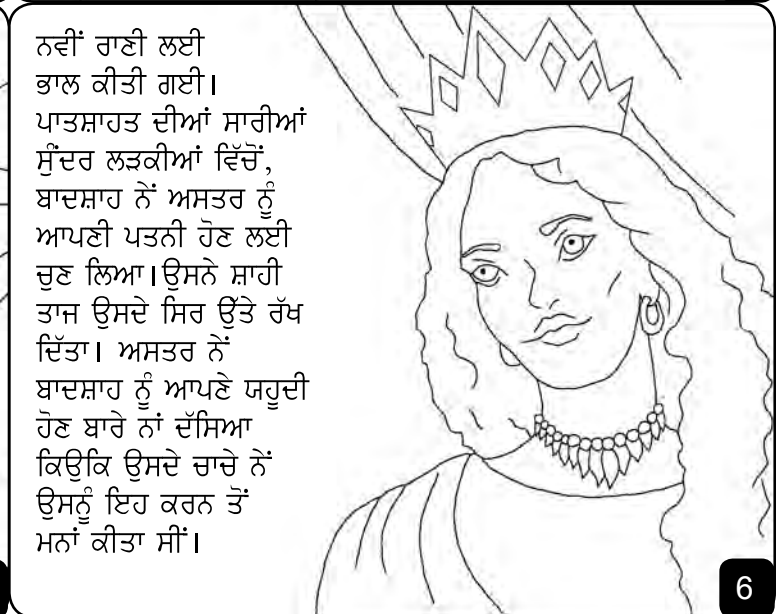 ਨਵੀਂ ਰਾਣੀ ਲਈ
ਭਾਲ ਕੀਤੀ ਗਈ।
ਪਾਤਸ਼ਾਹਤ ਦੀਆਂ ਸਾਰੀਆਂ
ਸੁੰਦਰ ਲੜਕੀਆਂ ਵਿੱਚੋਂ,
ਬਾਦਸ਼ਾਹ ਨੇਂ ਅਸਤਰ ਨੂੰ
ਆਪਣੀ ਪਤਨੀ ਹੋਣ ਲਈ
ਚੁਣ ਲਿਆ।ਉਸਨੇ ਸ਼ਾਹੀ
ਤਾਜ ਉਸਦੇ ਸਿਰ ਉੱਤੇ ਰੱਖ
ਦਿੱਤਾ। ਅਸਤਰ ਨੇਂ
ਬਾਦਸ਼ਾਹ ਨੂੰ ਆਪਣੇ ਯਹੂਦੀ
ਹੋਣ ਬਾਰੇ ਨਾਂ ਦੱਸਿਆ
ਕਿਉਕਿ ਉਸਦੇ ਚਾਚੇ ਨੇਂ
ਉਸਨੂੰ ਇਹ ਕਰਨ ਤੋਂ
ਮਨਾਂ ਕੀਤਾ ਸੀਂ।
6